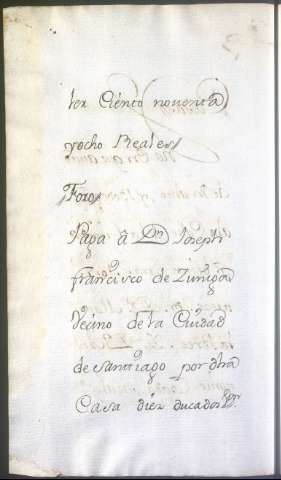 ter Ciento noventa
y ocho Reales
Foro
Paga â Dn Joseph
francisco de Zuñiga
Vecino de la Ciudad
de santtiago por dha
Casa diez ducados